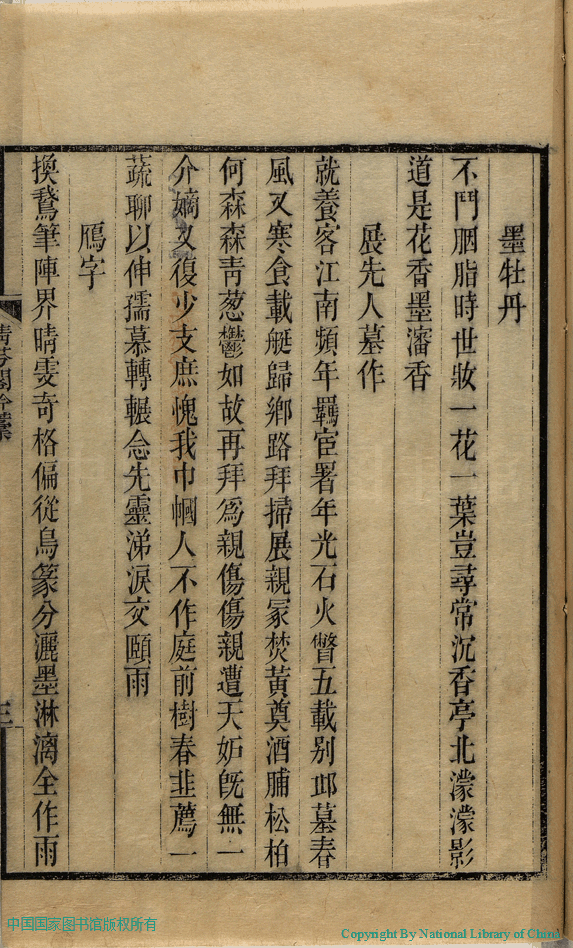 墨牡丹
不鬥胭脂時世妝一花一葉豈尋常沉香亭北濛濛影
道是花香墨瀋香
展先人墓作
就養客江南頻年羈宦署年光石火瞥五載別邱墓春
風又寒食載艇歸鄉路拜掃展親冢焚黃奠酒脯松柏
何森森靑葱鬱如故再拜爲親傷傷親遭天妬旣無一
介嫡又復少支庶愧我巾幗人不作庭前樹春韭薦一
蔬聊以伸孺慕轉輾念先靈涕淚交頤雨
鴈字
換鵞筆陣界晴雯奇格偏從鳥篆分灑墨淋漓全作雨
清芬閣吟稾
三
中国国家图书馆版权所有
Copyright By National Library of China